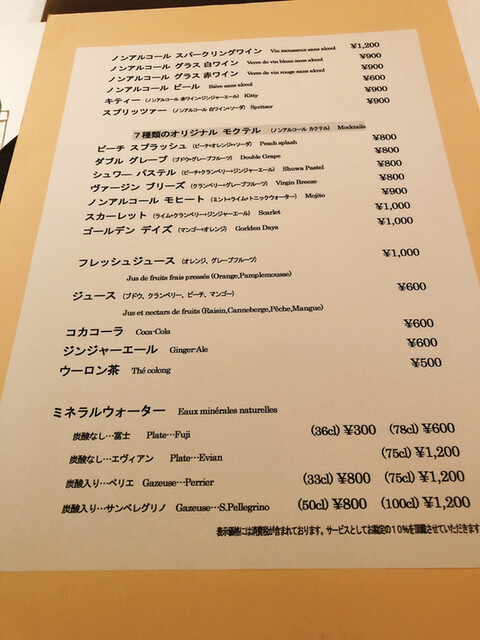 ノンアルコール スパークリングワイン Vin mousseux sans alcool ¥1,200
ノンアルコール グラス 白ワイン Verre de vin blanc sans alcool ¥900
ノンアルコール グラス 赤ワイン Verre de vin rouge sans alcool ¥900
ノンアルコール ビール Bière sans alcool ¥600
キティー (ノンアルコール 赤ワイン+ジンジャーエール) Kitty ¥900
スプリッツァー (ノンアルコール 白ワイン+ソーダ) Spritzer ¥900
7種類のオリジナル モクテル (ノンアルコール カクテル) Mocktails
ピーチ スプラッシュ (ピーチ+オレンジ+ソーダ) Peach splash ¥800
ダブル グレープ (ブドウ+グレープフルーツ) Double Grape ¥800
シュワー パステル (ピーチ+クランベリー+ジンジャーエール) Shuwa Pastel ¥800
ヴァージン ブリーズ (クランベリー+グレープフルーツ) Virgin Breeze ¥800
ノンアルコール モヒート (ミント+ライム+トニックウォーター) Mojito ¥900
スカーレット (ライム+クランベリー+ジンジャーエール) Scarlet ¥1,000
ゴールデン デイズ (マンゴー+オレンジ) Gorlden Days ¥1,000
フレッシュジュース (オレンジ、グレープフルーツ) ¥1,000
Jus de fruits frais pressés (Orange,Pamplemousse)
ジュース (ブドウ、クランベリー、ピーチ、マンゴー) ¥600
Jus et nectars de fruits (Raisin,Canneberge,Pêche,Mangue)
コカコーラ Coca-Cola ¥600
ジンジャーエール Ginger Ale ¥600
ウーロン茶 Thé oolong ¥500
ミネラルウォーター Eaux minérales naturelles
炭酸なし…富士 Plate…Fuji (36cl) ¥300 (78cl) ¥600
炭酸なし…エヴィアン Plate…Evian (75cl) ¥1,200
炭酸入り…ペリエ Gazeuse…Perrier (33cl) ¥800 (75cl) ¥1,200
炭酸入り…サンペレグリノ Gazeuse…S.Pellegrino (50cl) ¥800 (100cl) ¥1,200
表示価格には消費税が含まれております。サービスとしてお勘定の10%を頂戴させていただきます